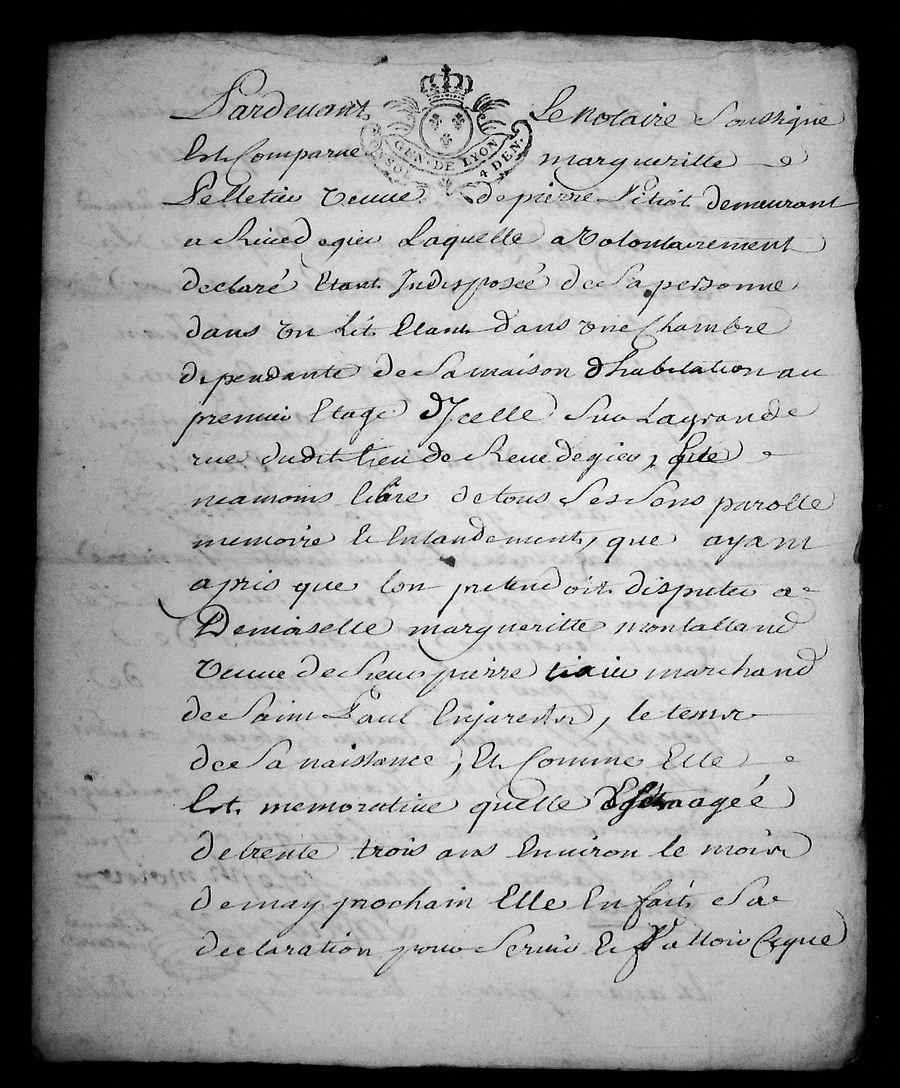 Pardevant Le Notaire Soussigne
GEN. DE LYON
4 DEN.
Est Comparue margueritte
Pelletier veuve de pierre demeurant
a Rivedegier Laquelle a Volontairement
declaré Etant Indisposée de Sa personne
dans un Lit Etant dans une Chambre
dependante de Sa maison d'habitation au
premier Etage d'Icelle Sur La grande
rue dudit Lieu de Rivedegier, que
neamoins libre de tous Ses Sens parolle
memoire Et Entandement, que ayant
apris que lon pretendoit disputer a
Demoiselle margueritte montalland
Veuve de Sieur pierre marchand
de Saint Paul Enjarest, le tems
de Sa naissance, Et Comme Elle
Est memorative quelle agée
de trente trois ans Environ le mois
de may prochain Elle En fait Sa
declaration pour Servir Et Valloir Ceque